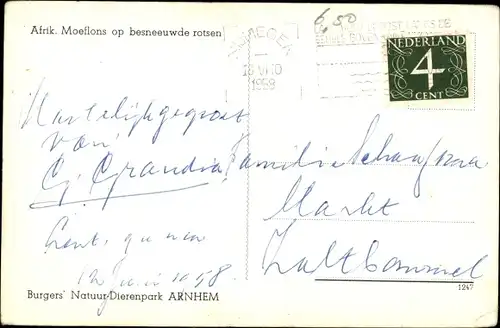 Afrik. Moeflons op besneeuwde rotsen
6,50
NIJMEGEN
1958
NEDERLAND
4
CENT
Hartelijk gegroet
van
G. Grandia
Familie Schaafsma
Markt
Zaltbommel
Gent,
12 Juni 1958.
Burgers' Natuur-Dierenpark ARNHEM
1247